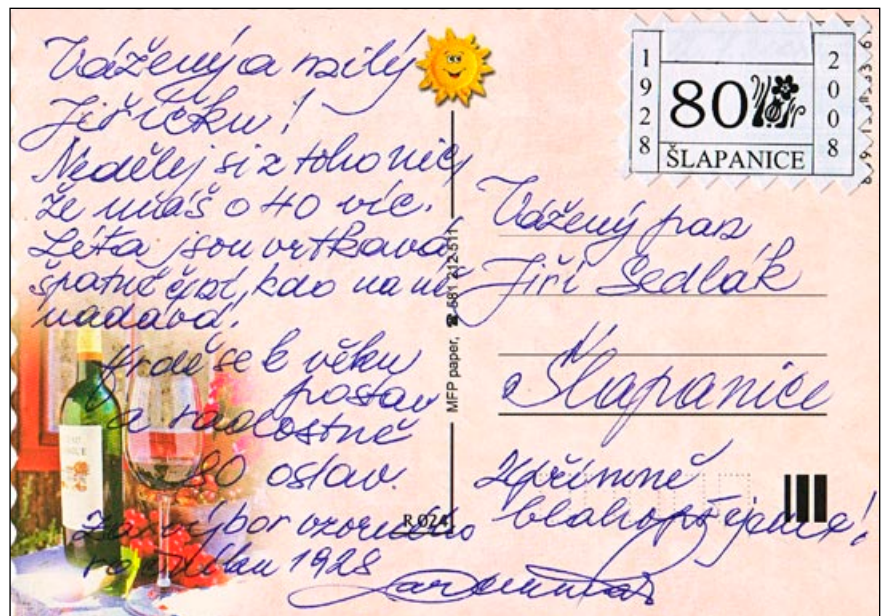 Vážený a milý
Jiříčku!
Nedělej si z toho nic,
že máš o 40 víc.
Léta jsou vrtkavá,
špatně činí, kdo na ně
nadává.
Hrdě se k věku
postav
a radostně
80 oslav.
Za výbor vzorného
ročníku 1928
MFP paper, ☎ 581 212-511
R 024
1928
80
2008
ŠLAPANICE
Vážený pan
Jiří Sedlák
Šlapanice
Upřímně
blahopřejeme!